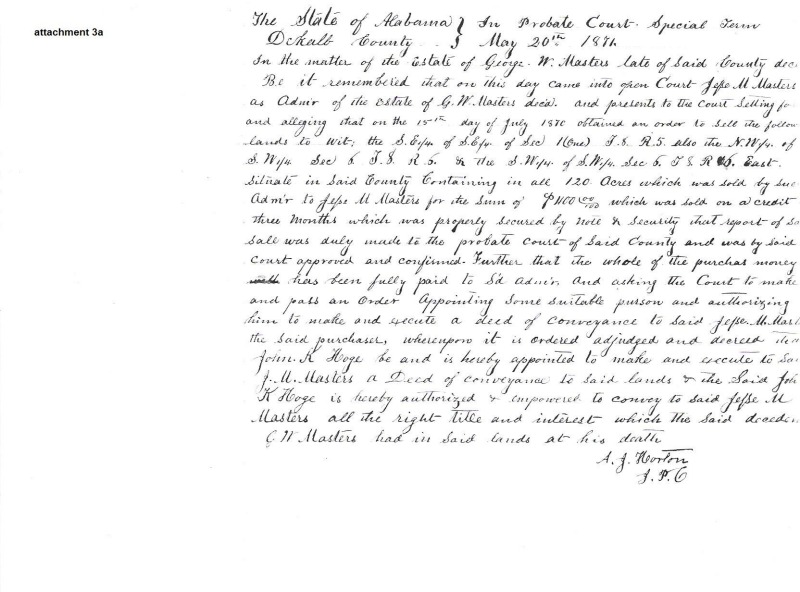 attachment 3a
The State of Alabama } In Probate Court. Special Term
DeKalb County . . } May 20th 1871.
In the matter of the Estate of George. W. Masters late of Said County dec
Be it remembered that on this day came into open Court Jesse M Masters
as Admr of the Estate of G. W. Masters decd. and presents to the Court Setting fo
and alleging that on the 15th day of July 1870 obtained an order to Sell the follow
lands to wit; the S.E/4. of S.E/4. of Sec 1 (One) T.8. R.5. also the N.W/4. of
S.W/4. Sec 6. T.8. R 6. & the S.W/4. of S.W/4. Sec 6. T 8 R 6. East.
Situate in Said County Containing in all 120 Acres which was sold by suc
Admr to Jesse M Masters for the Sum of $1100 00/100 which was sold on a credit
three Months which was properly secured by note & Security that report of Sa
Sale was duly made to the probate Court of Said County and was by Said
Court approved and confirmed. Further that the whole of the purchas money
has been fully paid to Sd Admr. And asking the Court to make
and pass an Order Appointing Some Suitable purson and authorizing
him to make and execute a deed of conveyance to Said Jesse. M. Mast
the Said purchaser, whereupon it is ordered adjudged and decreed tha
John. K Hoge be and is hereby appointed to make and execute to Sa
J. M. Masters a Deed of conveyance to Said lands & the Said Joh
K Hoge is hereby authorized & empowered to convey to Said Jesse M
Masters all the right title and interest which the Said deceden
G W Masters had in Said lands at his death
A. J. Horton
J. P. C